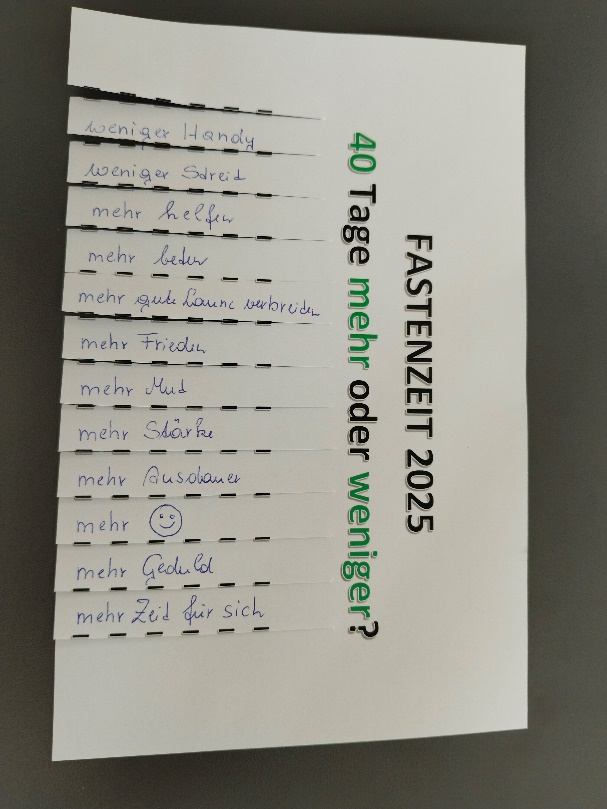 FASTENZEIT 2025
40 Tage mehr oder weniger?
weniger Handy
weniger Streit
mehr helfen
mehr beten
mehr gute Laune verbreiten
mehr Frieden
mehr Mut
mehr Stärke
mehr Ausdauer
mehr ☺
mehr Geduld
mehr Zeit für sich